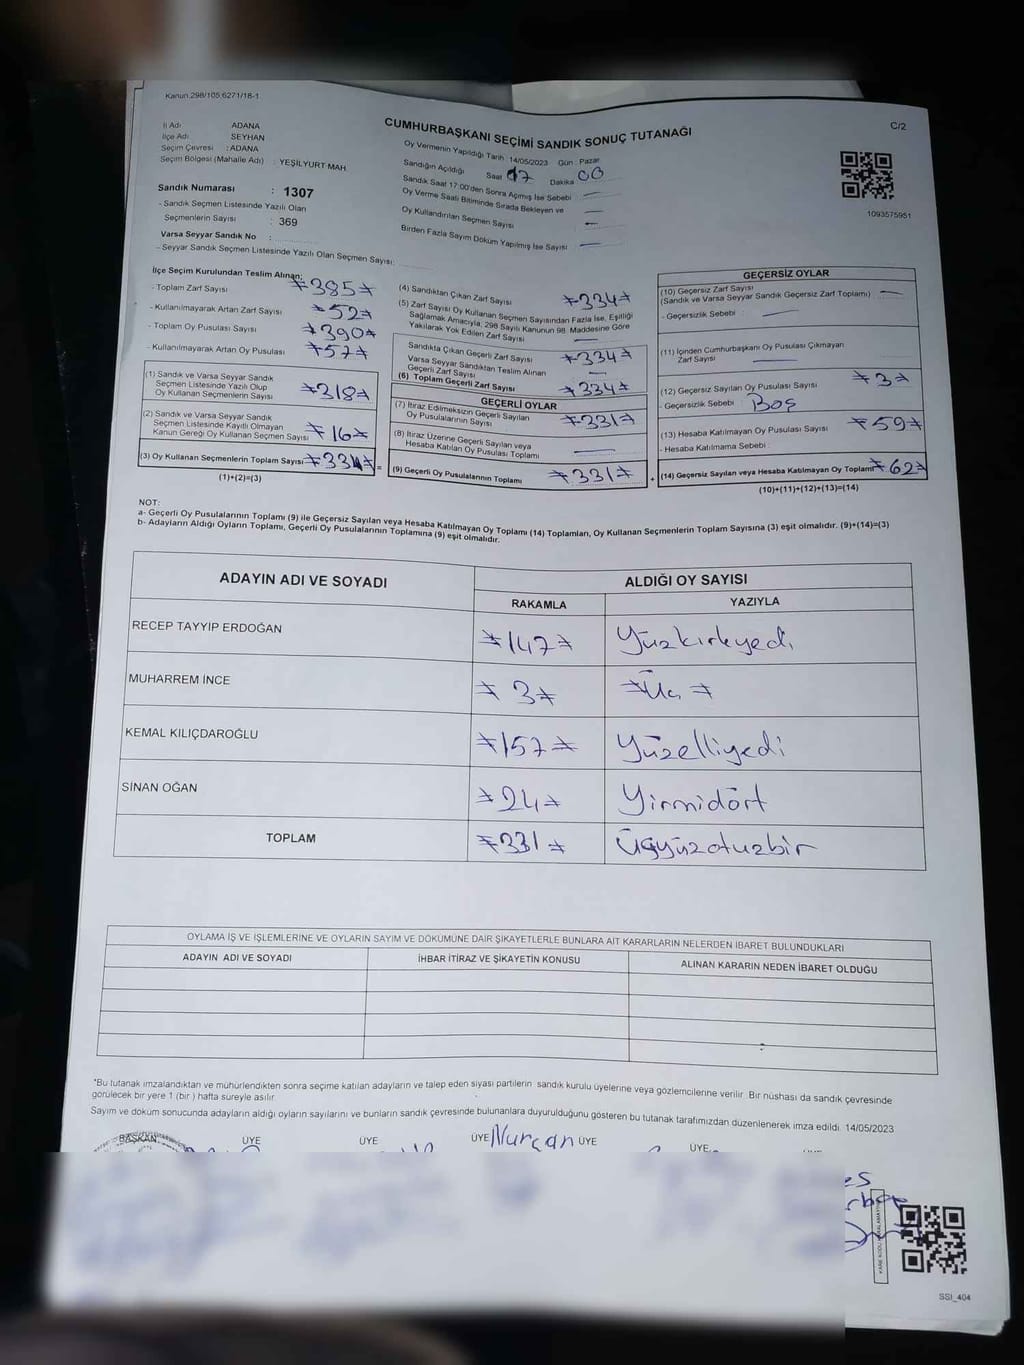 Kanun.298/105,6271/18-1
C/2
CUMHURBAŞKANI SEÇİMİ SANDIK SONUÇ TUTANAĞI
İl Adı : ADANA
İlçe Adı : SEYHAN
Seçim Çevresi : ADANA
Seçim Bölgesi (Mahalle Adı) : YEŞİLYURT MAH.
Sandık Numarası : 1307
- Sandık Seçmen Listesinde Yazılı Olan
Seçmenlerin Sayısı : 369
Varsa Seyyar Sandık No :
- Seyyar Sandık Seçmen Listesinde Yazılı Olan Seçmen Sayısı:
Oy Vermenin Yapıldığı Tarih 14/05/2023 Gün : Pazar
Sandığın Açıldığı Saat 17 Dakika 00
Sandık Saat 17:00'den Sonra Açmış İse Sebebi
Oy Verme Saati Bitiminde Sırada Bekleyen ve
Oy Kullandırılan Seçmen Sayısı
Birden Fazla Sayım Döküm Yapılmış İse Sayısı
1093575951
İlçe Seçim Kurulundan Teslim Alınan;
- Toplam Zarf Sayısı 385
- Kullanılmayarak Artan Zarf Sayısı 52
- Toplam Oy Pusulası Sayısı 390
- Kullanılmayarak Artan Oy Pusulası 57
(1) Sandık ve Varsa Seyyar Sandık
Seçmen Listesinde Yazılı Olup
Oy Kullanan Seçmenlerin Sayısı 318
(2) Sandık ve Varsa Seyyar Sandık
Seçmen Listesinde Kayıtlı Olmayan
Kanun Gereği Oy Kullanan Seçmen Sayısı 16
(3) Oy Kullanan Seçmenlerin Toplam Sayısı 334 =
(1)+(2)=(3)
(4) Sandıktan Çıkan Zarf Sayısı 334
(5) Zarf Sayısı Oy Kullanan Seçmen Sayısından Fazla İse, Eşitliği
Sağlamak Amacıyla, 298 Sayılı Kanunun 98. Maddesine Göre
Yakılarak Yok Edilen Zarf Sayısı
Sandıkta Çıkan Geçerli Zarf Sayısı 334
Varsa Seyyar Sandıktan Teslim Alınan
Geçerli Zarf Sayısı
(6) Toplam Geçerli Zarf Sayısı 334
GEÇERLİ OYLAR
(7) İtiraz Edilmeksizin Geçerli Sayılan
Oy Pusulalarının Sayısı 331
(8) İtiraz Üzerine Geçerli Sayılan veya
Hesaba Katılan Oy Pusulası Toplamı
(9) Geçerli Oy Pusulalarının Toplamı 331 +
GEÇERSİZ OYLAR
(10) Geçersiz Zarf Sayısı
(Sandık ve Varsa Seyyar Sandık Geçersiz Zarf Toplamı)
- Geçersizlik Sebebi :
(11) İçinden Cumhurbaşkanı Oy Pusulası Çıkmayan
Zarf Sayısı
(12) Geçersiz Sayılan Oy Pusulası Sayısı 3
- Geçersizlik Sebebi : Boş
(13) Hesaba Katılmayan Oy Pusulası Sayısı 59
- Hesaba Katılmama Sebebi :
(14) Geçersiz Sayılan veya Hesaba Katılmayan Oy Toplamı 62
(10)+(11)+(12)+(13)=(14)
NOT:
a- Geçerli Oy Pusulalarının Toplamı (9) ile Geçersiz Sayılan veya Hesaba Katılmayan Oy Toplamı (14) Toplamları, Oy Kullanan Seçmenlerin Toplam Sayısına (3) eşit olmalıdır. (9)+(14)=(3)
b- Adayların Aldığı Oyların Toplamı, Geçerli Oy Pusulalarının Toplamına (9) eşit olmalıdır.
ADAYIN ADI VE SOYADI
ALDIĞI OY SAYISI
RAKAMLA YAZIYLA
RECEP TAYYİP ERDOĞAN 147 Yüzkırkyedi
MUHARREM İNCE 3 Üç
KEMAL KILIÇDAROĞLU 157 Yüzelliyedi
SİNAN OĞAN 24 Yirmidört
TOPLAM 331 Üçyüzotuzbir
OYLAMA İŞ VE İŞLEMLERİNE VE OYLARIN SAYIM VE DÖKÜMÜNE DAİR ŞİKAYETLERLE BUNLARA AİT KARARLARIN NELERDEN İBARET BULUNDUKLARI
ADAYIN ADI VE SOYADI İHBAR İTİRAZ VE ŞİKAYETİN KONUSU ALINAN KARARIN NEDEN İBARET OLDUĞU
*Bu tutanak imzalandıktan ve mühürlendikten sonra seçime katılan adayların ve talep eden siyasi partilerin sandık kurulu üyelerine veya gözlemcilerine verilir. Bir nüshası da sandık çevresinde
görülecek bir yere 1 (bir) hafta süreyle asılır.
Sayım ve döküm sonucunda adayların aldığı oyların sayılarını ve bunların sandık çevresinde bulunanlara duyurulduğunu gösteren bu tutanak tarafımızdan düzenlenerek imza edildi. 14/05/2023
BAŞKAN ÜYE ÜYE ÜYE Nurcan ÜYE ÜYE
SSI_404